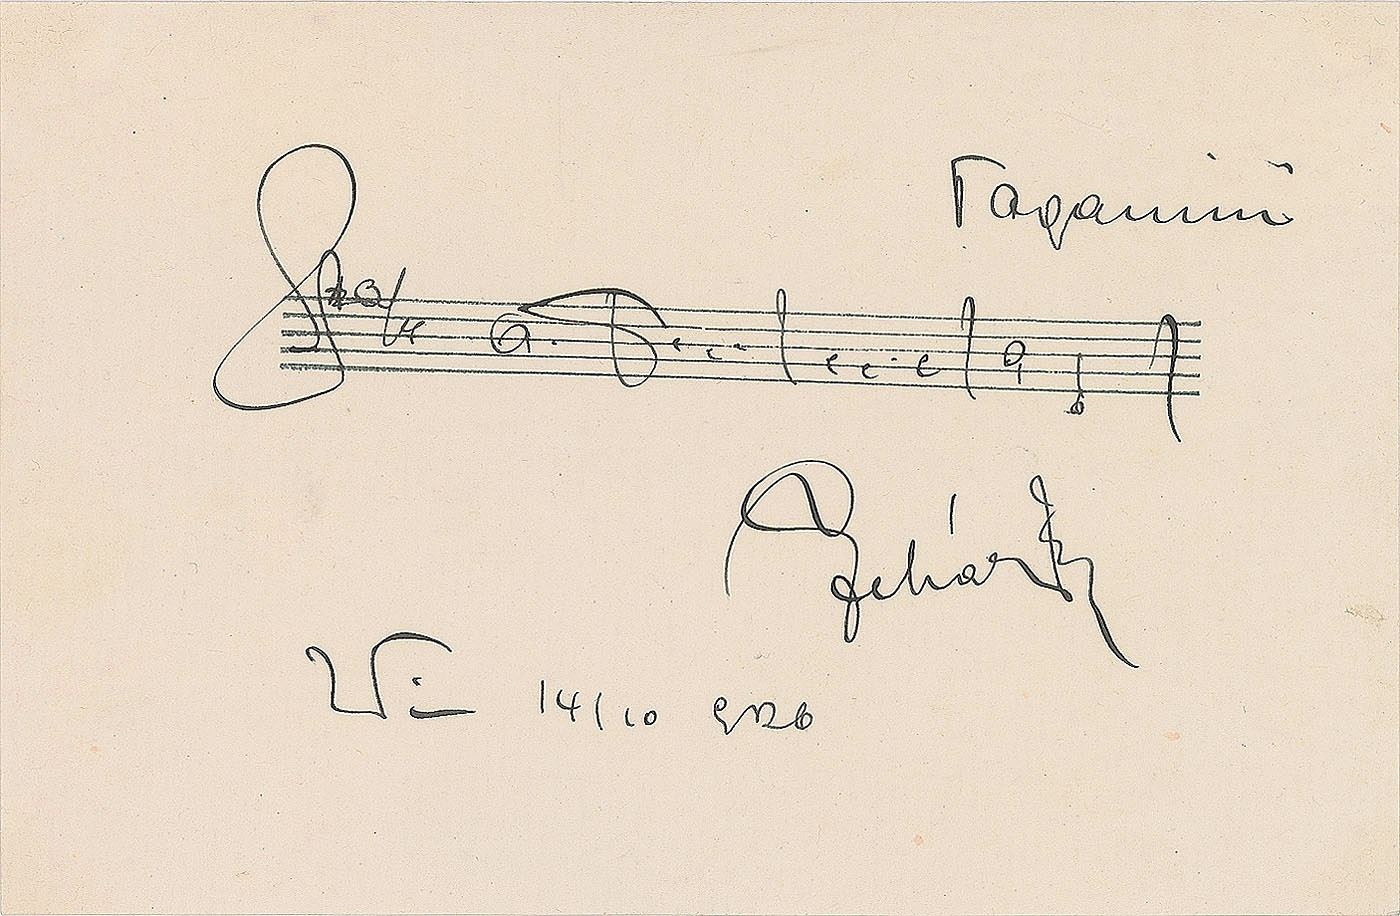 Paganini
Lehár
Wien 14/10 926